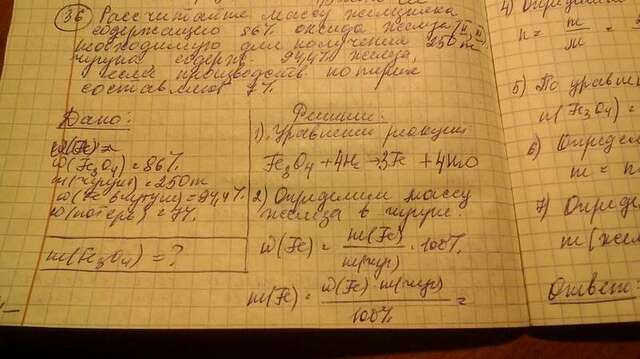 36 Рассчитайте массу железняка
содержащего 86% оксида железа (II, III)
необходимую для получения 250 т
чугуна содерж. 94,4% железа,
если производств. потери
составляют 7%
Дано:
ω(Fe3O4) = 86%
m(чугун) = 250 т
ω(Fe в чугуне) = 94,4%
ω(потерь) = 7%
m(Fe3O4) = ?
Решение:
1). Уравнение реакции
Fe3O4 + 4H2 → 3Fe + 4H2O
2) Определяем массу
железа в чугуне:
ω(Fe) = m(Fe) / m(чуг) · 100%
m(Fe) = ω(Fe) · m(чуг) / 100% =
4) Определяем
n = m / m =
5) По уравне
n(Fe3O4) =
6) Определ
m = n
7) Опреде
m(жел
Ответ: